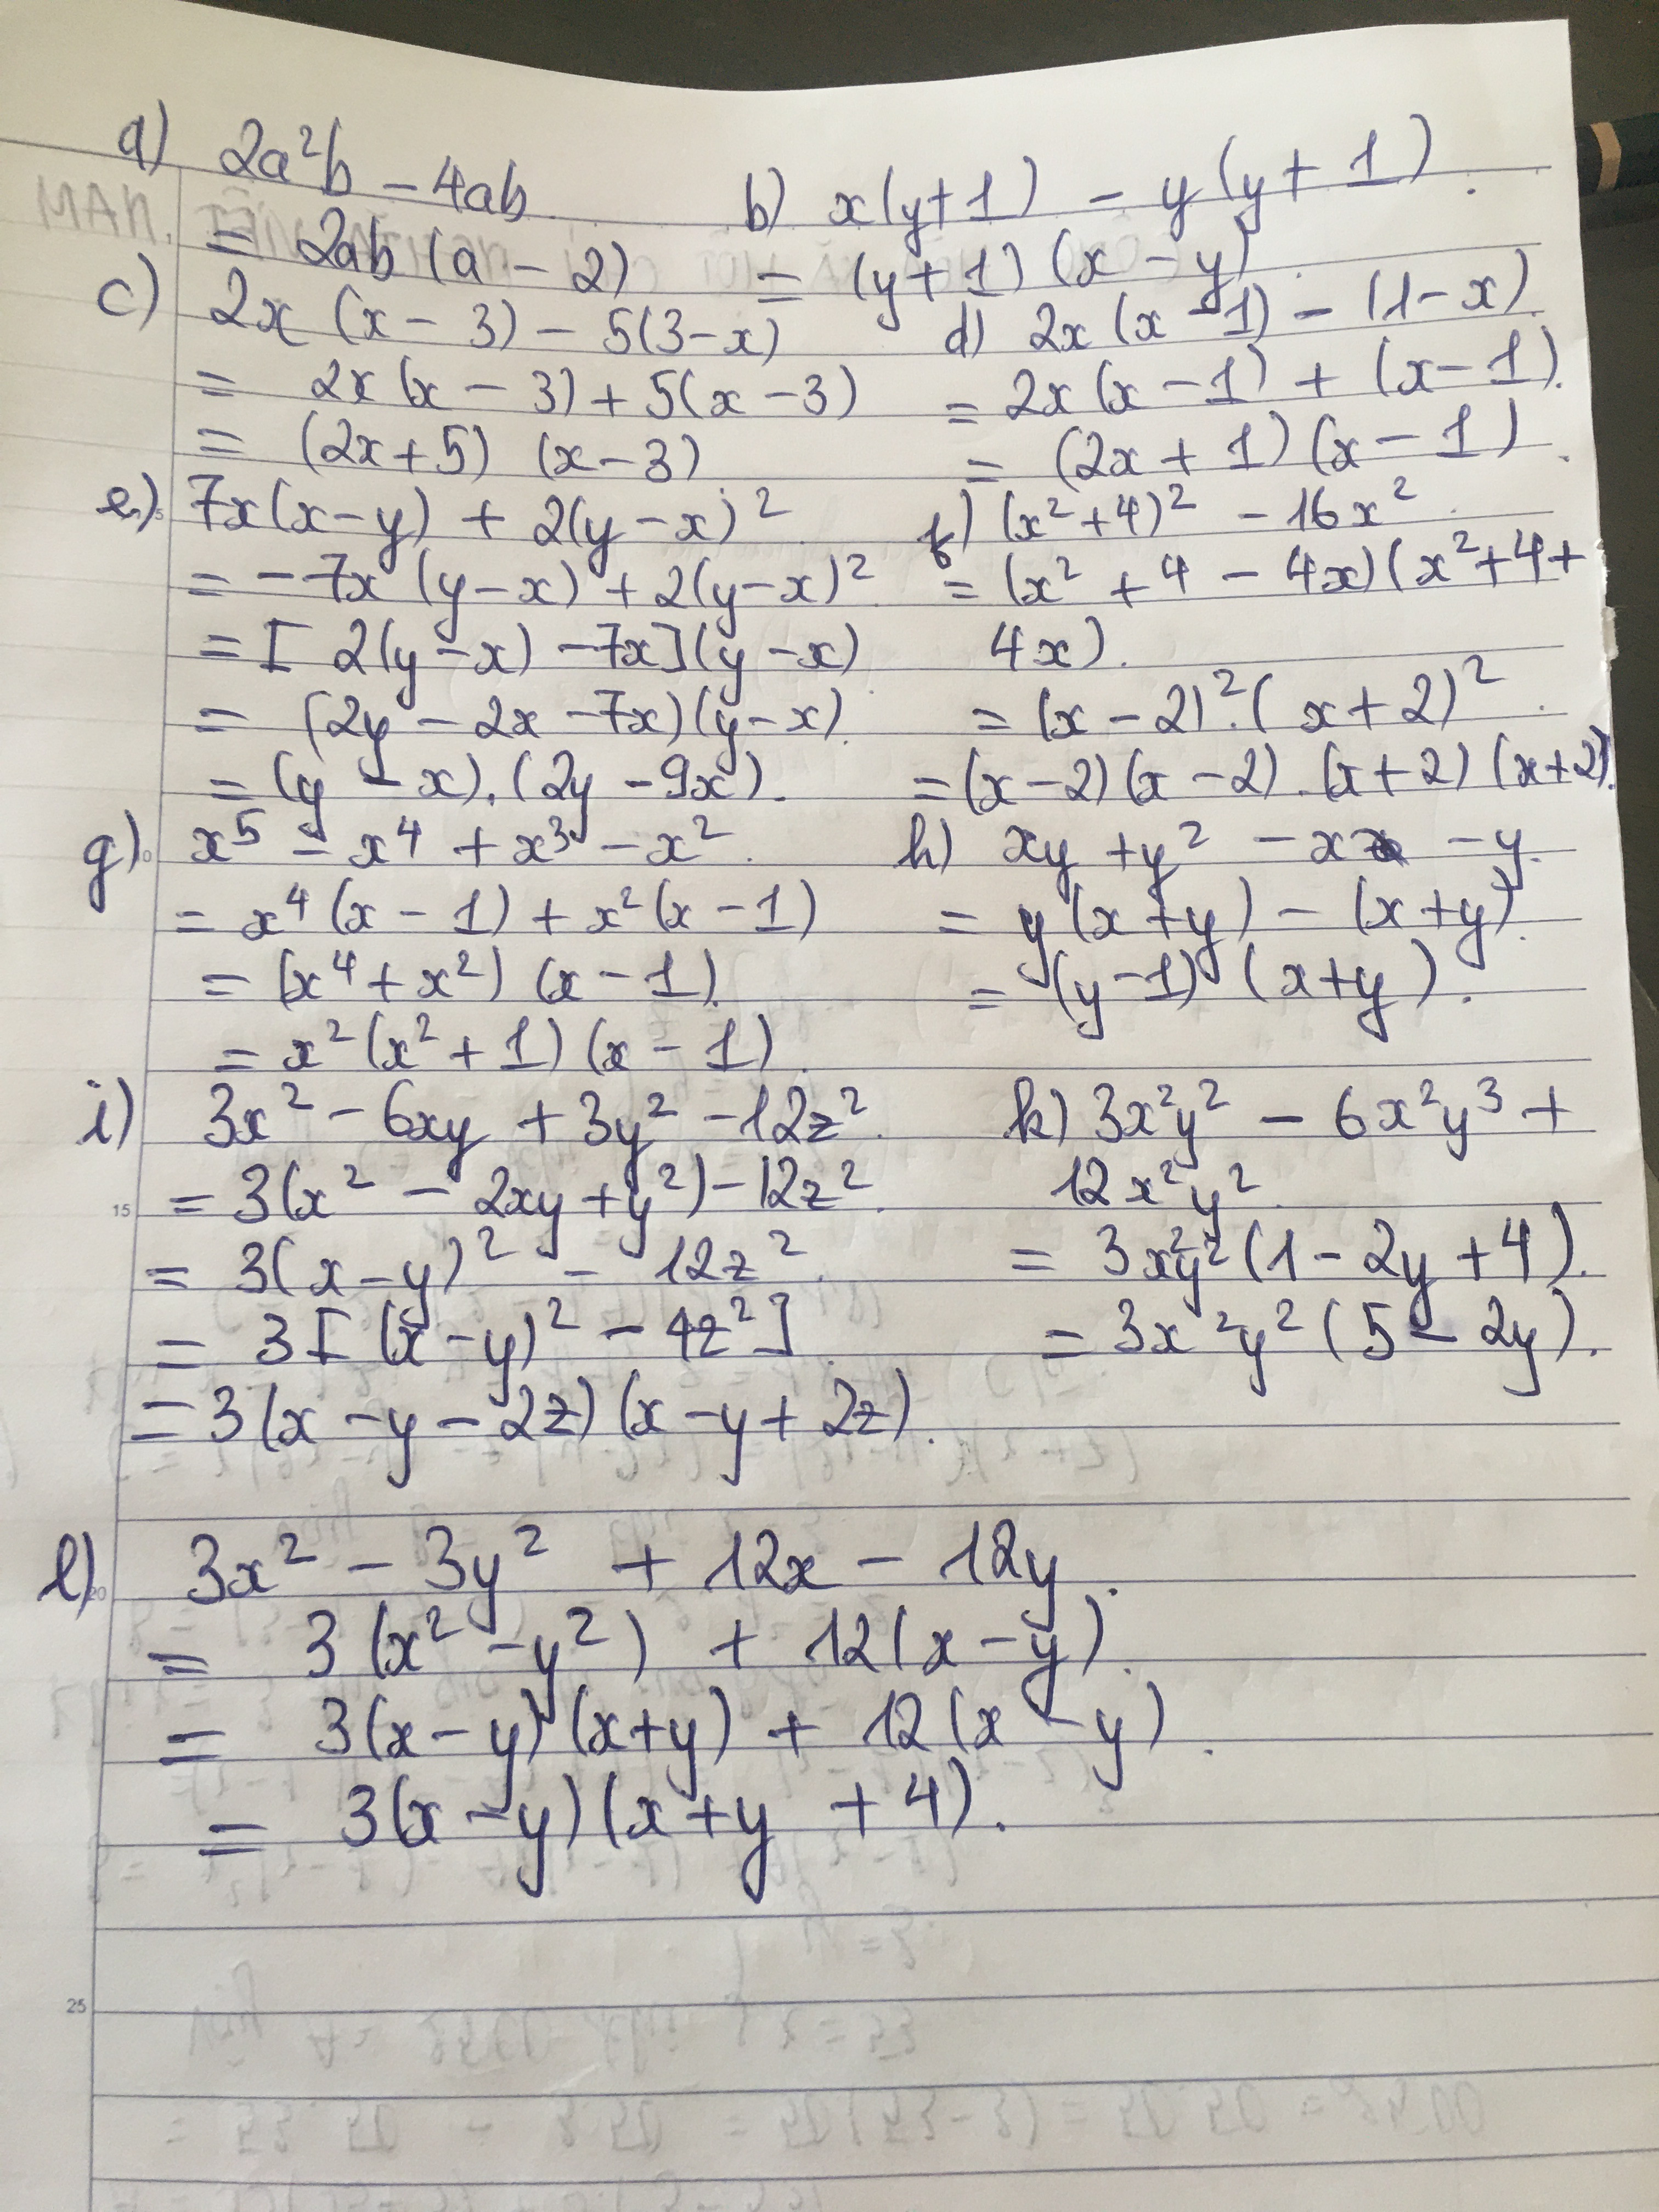 a) 2a²b - 4ab
= 2ab (a - 2)
b) x(y+1) - y(y+1).
= (y+1)(x-y).
c) 2x (x-3) - 5(3-x)
= 2x(x-3)+5(x-3)
= (2x+5) (x-3)
d) 2x(x-1) - (1-x).
= 2x(x-1) + (x-1).
= (2x+1)(x-1).
e) 7x(x-y) + 2(y-x)²
= -7x (y-x) + 2(y-x)²
= [2(y-x) -7x](y-x)
= (2y-2x-7x)(y-x).
= (y-x).(2y-9x).
f) (x²+4)² - 16x².
= (x²+4-4x)(x²+4+
4x).
= (x-2)².(x+2)².
= (x-2)(x-2).(x+2)(x+2).
g) x⁵ - x⁴ + x³ - x².
= x⁴(x-1) + x²(x-1)
= (x⁴+x²) (x-1).
= x²(x²+1)(x-1).
h) xy + y² - x - y.
= y(x+y) - (x+y).
= (y-1) (x+y).
i) 3x² - 6xy + 3y² - 12z².
= 3(x² - 2xy + y²) - 12z².
= 3(x-y)² - 12z².
= 3[(x-y)² - 4z²].
= 3(x-y-2z)(x-y+2z).
k) 3x²y² - 6x²y³ +
12x²y².
= 3x²y²(1-2y+4).
= 3x²y²(5-2y).
l) 3x² - 3y² + 12x - 12y.
= 3(x²-y²) + 12(x-y).
= 3(x-y)(x+y) + 12(x-y).
= 3(x-y)(x+y+4).
15
20
25